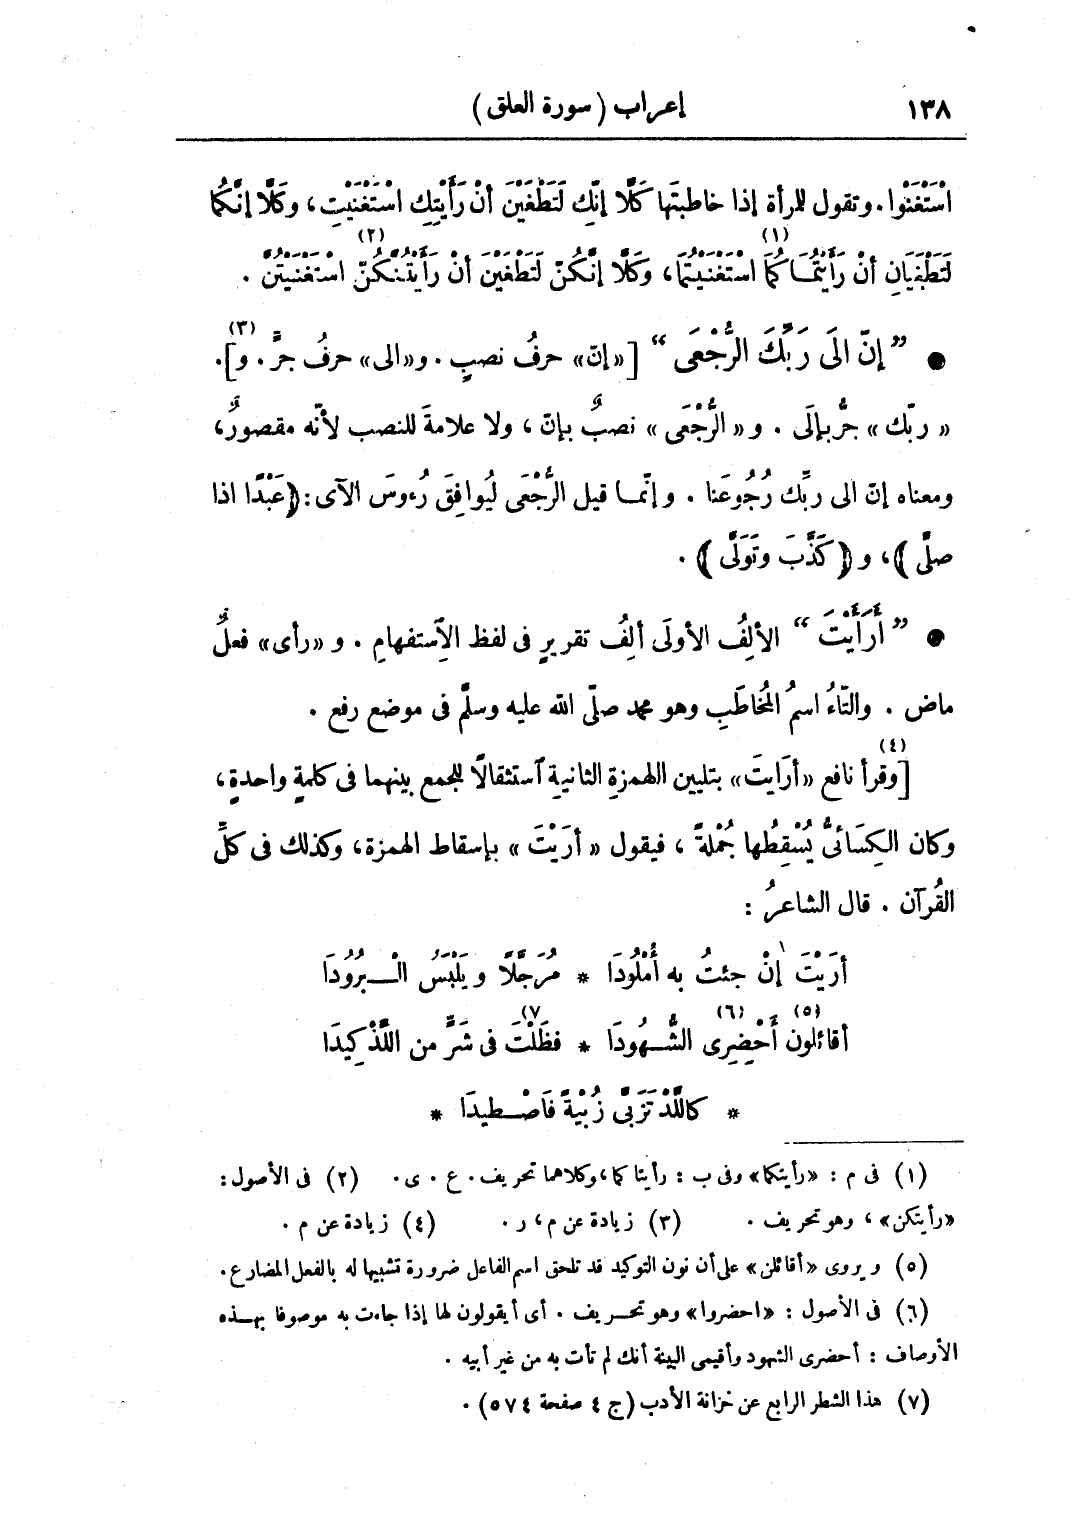 ١٣٨ إعراب (سورة العلق)
اسْتَغْنَوْا. وتقول للمرأة إذا خاطبتَها كَلَّا إنّكِ لَتَطْغَيْنَ أنْ رَأَيْتِكِ اسْتَغْنَيْتِ، وكَلَّا إنّكُما
لَتَطْغَيَانِ أنْ رَأَيْتُمَـاكُمَا (١) اسْتَغْنَيْتُمَا، وكَلَّا إنّكُنّ لَتَطْغَيْنَ أنْ رَأَيْتُنَّكُنّ (٢) اسْتَغْنَيْتُنَّ.
● " إنّ الَى رَبِّكَ الرُّجْعَى " [«إنّ» حرفُ نصبٍ. و«الى» حرفُ جرٍّ. و (٣)].
« ربّك » جرٌّ بإلَى. و « الرُّجْعَى » نصبٌ بإنّ، ولا علامةَ للنصب لأنّه مقصورٌ،
ومعناه إنّ الى ربِّك رُجُوعَنا. وإنّمـا قيل الرُّجْعَى لُيوافِقَ رُءوسَ الآى: ﴿عَبْدًا اذا
صلَّى﴾، و ﴿كَذَّبَ وتَوَلَّى﴾.
● " أَرَأَيْتَ " الألِفُ الأولَى ألِفُ تقريرٍ فى لفظ الِاستفهامِ. و «رأى» فعلٌ
ماض. والتّاءُ اسمُ المُخاطَبِ وهو محمد صلّى الله عليه وسلَّم فى موضع رفع.
[وقرأ (٤) نافع «أرَايتَ» بتليين الهمزةِ الثانيةِ ٱستثقالًا للجمع بينهما فى كلمةٍ واحدةٍ،
وكان الكِسَائىُّ يُسْقِطُها جُمْلةً، فيقول « أرَيْتَ » بإسقاط الهمزة، وكذلك فى كلِّ
القُرآن. قال الشاعرُ :
أرَيْتَ إنْ جئتُ به أُمْلُودَا * مُرَجَّلًا ويَلْبَسُ الْـبُرُودَا
أقائلون (٥) أَحْضِرِى (٦) الشُّـهُودَا * فظَلْتَ (٧) فى شَرٍّ من اللَّذْ كِيدَا
* كاللَّذْ تَزَبَّى زُبْيَةً فَاصْـطِيدَا *
(١) فى م : «رأيتكما» وفى ب : رأيتا كما، وكلاهما تحريف. ع. ى. (٢) فى الأصول :
«رأيتكن»، وهو تحريف. (٣) زيادة عن م، ر. (٤) زيادة عن م.
(٥) ويروى «أقائلن» على أن نون التوكيد قد تلحق اسم الفاعل ضرورة تشبيها له بالفعل المضارع.
(٦) فى الأصول : «احضروا» وهو تحـريف. أى أيقولون لها إذا جاءت به موصوفا بهـذه
الأوصاف : أحضرى الشهود وأقيمى البينة أنك لم تأت به من غير أبيه.
(٧) هذا الشطر الرابع عن خزانة الأدب (ج ٤ صفحة ٥٧٤).